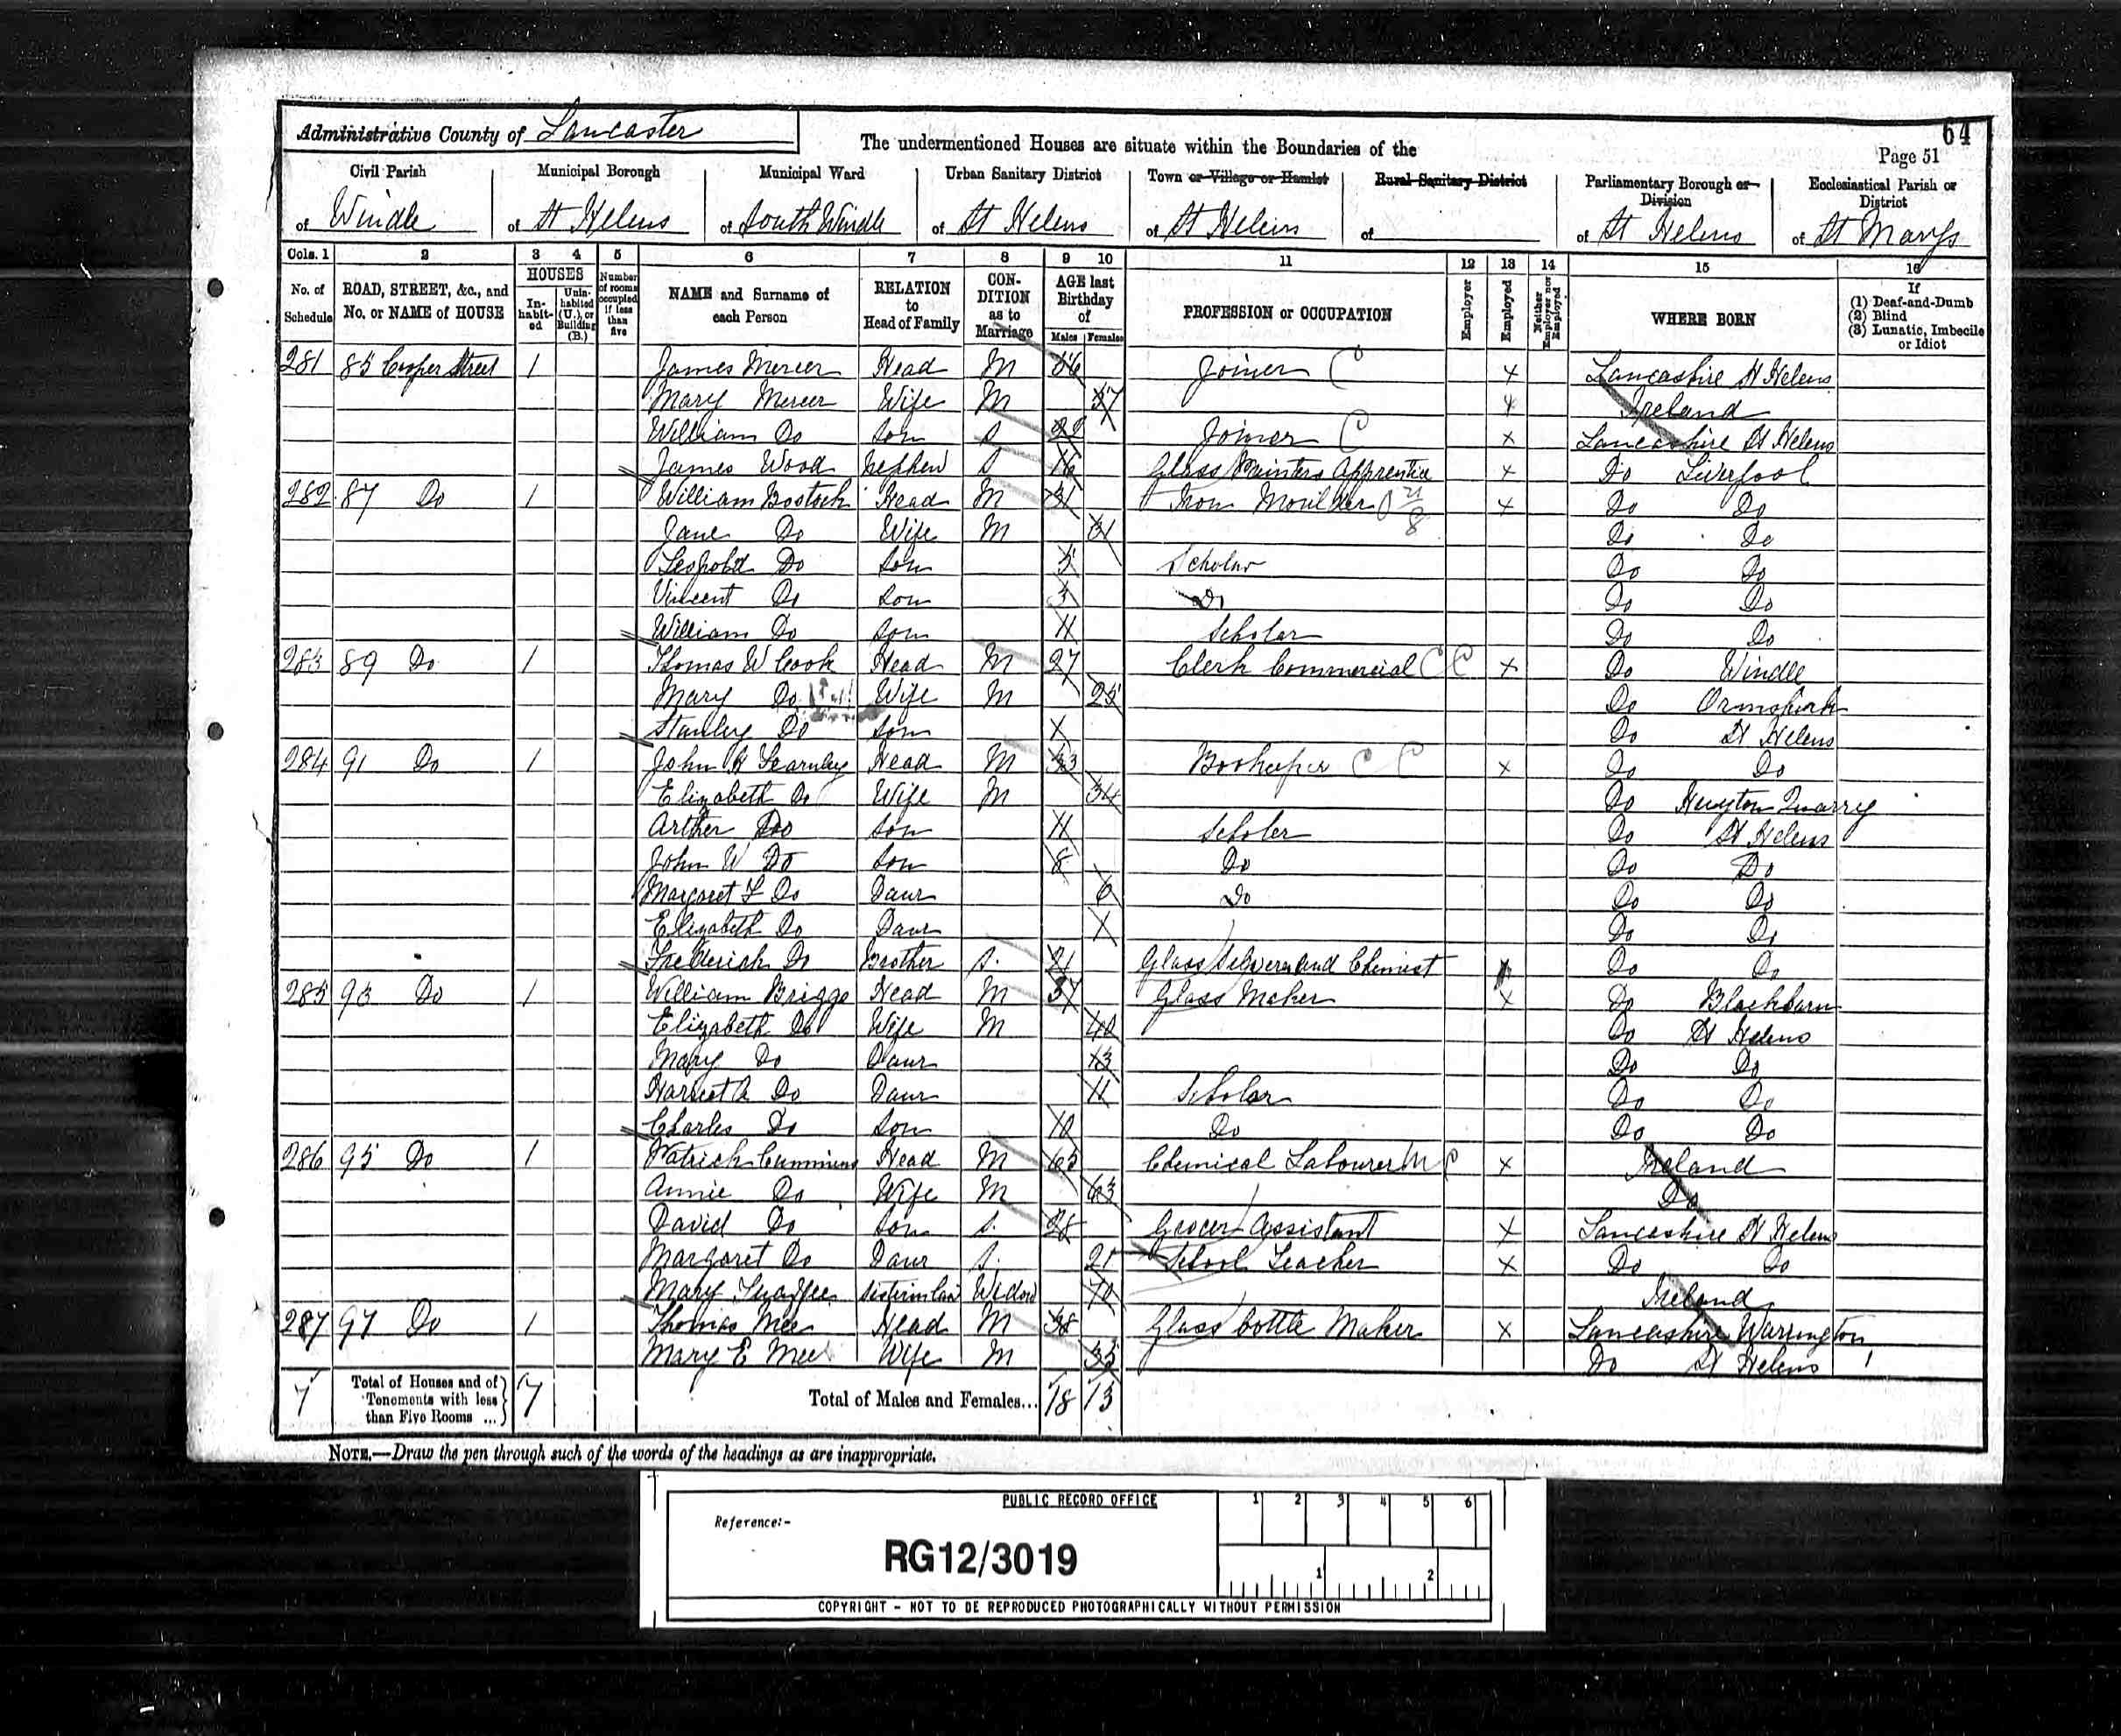 64
Administrative County of Lancaster
The undermentioned Houses are situate within the Boundaries of the
Page 51
Civil Parish of Windle
Municipal Borough of St Helens
Municipal Ward of South Windle
Urban Sanitary District of St Helens
Town or Village or Hamlet of St Helens
Rural Sanitary District of
Parliamentary Borough or Division of St Helens
Ecclesiastical Parish or District of St Marys
Cols. 1 2 3 4 5 6 7 8 9 10 11 12 13 14 15 16
No. of Schedule
ROAD, STREET, &c., and No. or NAME of HOUSE
HOUSES
In-habit-ed
Unin-habited (U.), or Building (B.)
Number of rooms occupied if less than five
NAME and Surname of each Person
RELATION to Head of Family
CON-DITION as to Marriage
AGE last Birthday of
Males Females
PROFESSION or OCCUPATION
Employer
Employed
Neither Employer nor Employed
WHERE BORN
If (1) Deaf-and-Dumb (2) Blind (3) Lunatic, Imbecile or Idiot
281 85 Cooper Street 1 James Mercer Head M 56 Joiner C x Lancashire St Helens
Mary Mercer Wife M 57 x Ireland
William Do Son S 22 Joiner C x Lancashire St Helens
James Wood Nephew S 16 Glass Painters Apprentice x Do Liverpool
282 87 Do 1 William Bostock Head M 31 Iron Moulder 21/8 x Do Do
Jane Do Wife M 31 Do Do
Leopold Do Son 5 Scholar Do Do
Vincent Do Son 3 Do Do Do
William Do Son 11 Scholar Do Do
283 89 Do 1 Thomas W Cook Head M 27 Clerk Commercial C C x Do Windle
Mary Do Wife M 25 Do Ormskirk
Stanley Do Son Do St Helens
284 91 Do 1 John H Fearnley Head M 33 Bookeeper C C x Do Do
Elizabeth Do Wife M 34 Do Huyton Quarry
Arther Do Son 11 Scholer Do St Helens
John W Do Son 8 Do Do Do
Margaret F Do Daur 6 Do Do Do
Elizabeth Do Daur Do Do
Frederick Do Brother S. 21 Glass Silverer and Chemist x Do Do
285 93 Do 1 William Briggs Head M 37 Glass Maker x Do Blackburn
Elizabeth Do Wife M 40 Do St Helens
Mary Do Daur 13 Do Do
Harriet A Do Daur 11 Scholar Do Do
Charles Do Son 10 Do Do Do
286 95 Do 1 Patrick Cummins Head M 65 Chemical Labourer x Ireland
Annie Do Wife M 63 Do
David Do Son S. 28 Grocer Assistant x Lancashire St Helens
Margaret Do Daur S. 21 School Teacher x Do Do
Mary Sister in law Widow 70 Ireland
287 97 Do 1 Thomas Mee Head M 38 Glass bottle Maker x Lancashire Warrington
Mary E Mee Wife M 35 Do St Helens
7 Total of Houses and of Tenements with less than Five Rooms ...} 7 Total of Males and Females... 18 13
NOTE.—Draw the pen through such of the words of the headings as are inappropriate.
PUBLIC RECORD OFFICE
1 2 3 4 5 6
Reference:-
RG12/3019
1 2
COPYRIGHT - NOT TO BE REPRODUCED PHOTOGRAPHICALLY WITHOUT PERMISSION